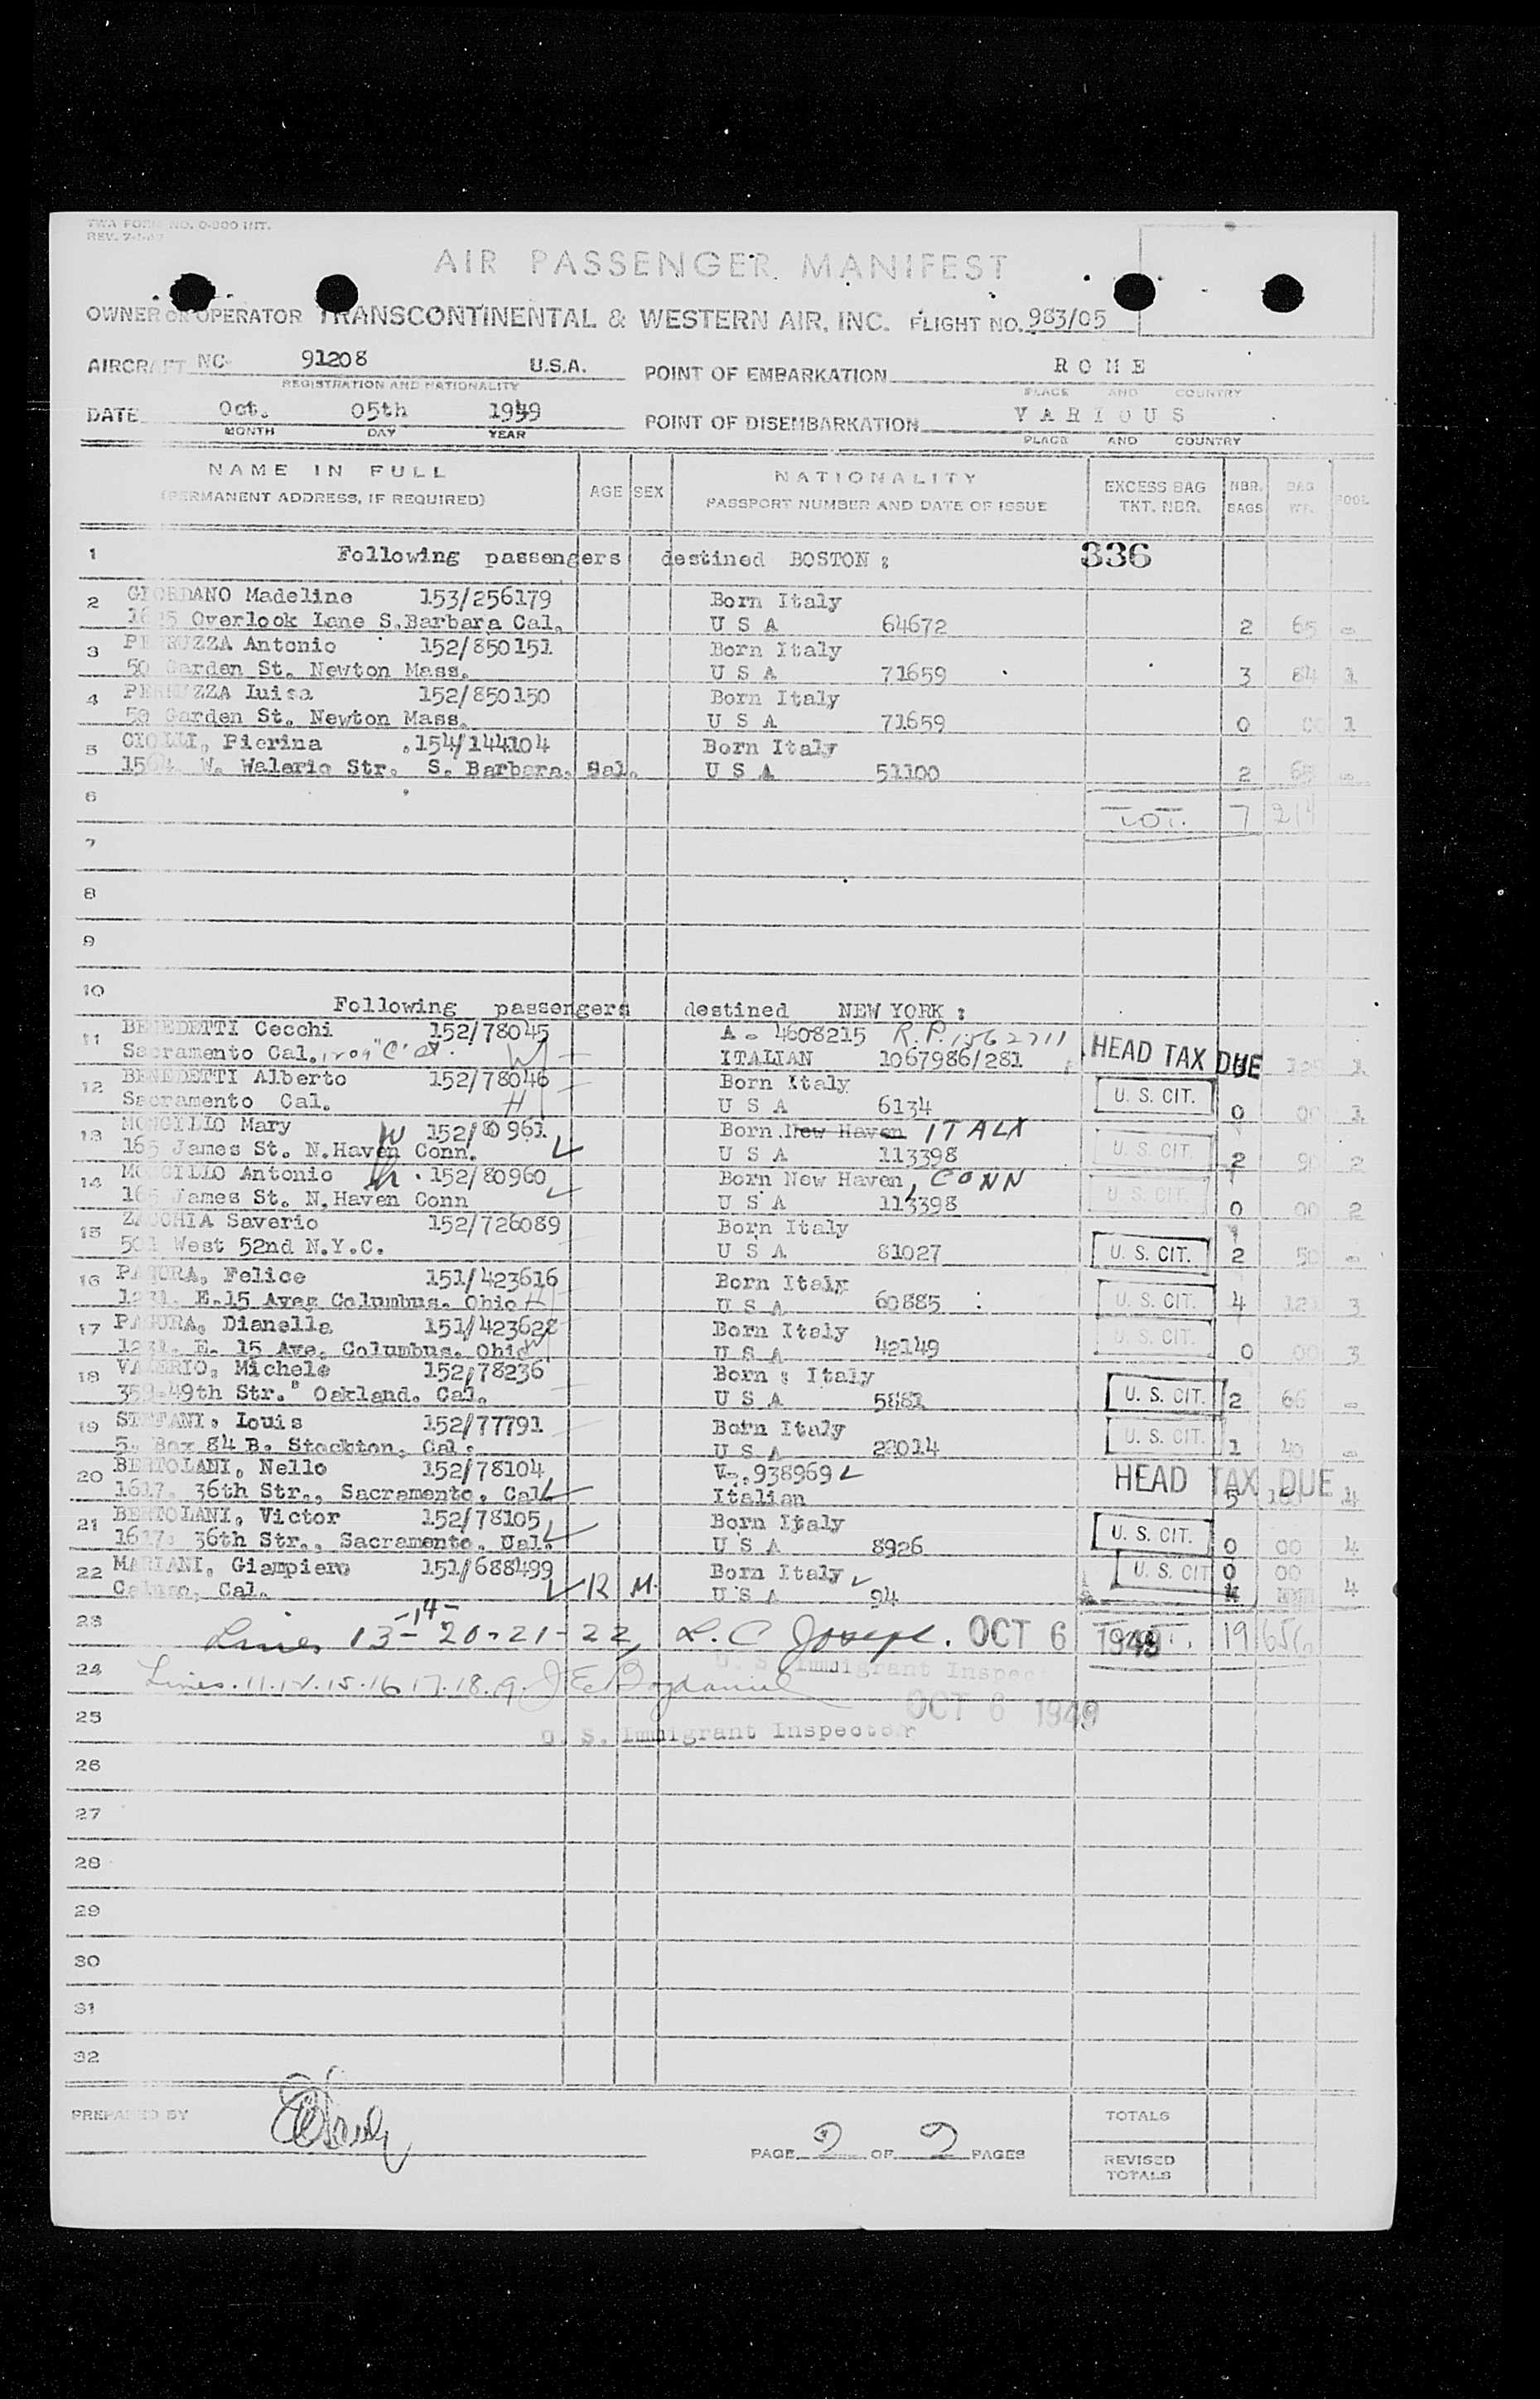 TWA FORM NO. 0-300 INT.
REV.
AIR PASSENGER MANIFEST
OWNER OR OPERATOR TRANSCONTINENTAL & WESTERN AIR, INC. FLIGHT NO. 983/05
AIRCRAFT NC 91208 U.S.A. POINT OF EMBARKATION ROME
REGISTRATION AND NATIONALITY PLACE AND COUNTRY
DATE Oct. 05th 1949 POINT OF DISEMBARKATION VARIOUS
MONTH DAY YEAR PLACE AND COUNTRY
NAME IN FULL AGE SEX NATIONALITY EXCESS BAG NBR. BAG POOL
(PERMANENT ADDRESS, IF REQUIRED) PASSPORT NUMBER AND DATE OF ISSUE TKT. NBR. BAGS WT.
1 Following passengers destined BOSTON : 336
2 GIORDANO Madeline 153/256179 Born Italy
Overlook Lane S.Barbara Cal. U S A 64672 2 65 -
3 PERRUZZA Antonio 152/850151 Born Italy
50 Garden St. Newton Mass. U S A 71659 3 84 1
4 PERRUZZA Luisa 152/850150 Born Italy
50 Garden St. Newton Mass. U S A 71659 0 00 1
5 CIOLLI, Pierina 154/144104 Born Italy
W. Walerio Str. S. Barbara. Cal. U S A 51100 2 65 -
6 TOT. 7 214
7
8
9
10 Following passengers destined NEW YORK :
11 BENEDETTI Cecchi 152/78045 A - 4608215 R.P. 1562711
Sacramento Cal. 1209 "C" St. W ITALIAN 1067986/281 HEAD TAX DUE 1
12 BENEDETTI Alberto 152/78046 Born Italy U. S. CIT.
Sacramento Cal. H U S A 6134 0 00 1
13 MONGILLO Mary W 152/80961 Born New Haven ITALY
165 James St. N.Haven Conn. U S A 113398 U. S. CIT. 2 90 2
14 MONGILLO Antonio h 152/80960 Born New Haven, CONN
165 James St. N.Haven Conn U S A 113398 U. S. CIT. 0 00 2
15 ZACCHIA Saverio 152/726089 Born Italy
501 West 52nd N.Y.C. U S A 81027 U. S. CIT. 2 50 -
16 PAGURA, Felice 151/423616 Born Italy
1231. E.15 Ave. Columbus. Ohio H U S A 60885 U. S. CIT. 4 121 3
17 PAGURA, Dianella 151/423628 Born Italy
1231. E. 15 Ave. Columbus. Ohio W U S A 42149 U. S. CIT. 0 00 3
18 VALERIO, Michele 152/78236 Born : Italy
359-49th Str. Oakland. Cal. U S A 5881 U. S. CIT. 2 66 -
19 STEFANI, Louis 152/77791 Born Italy
5. Box 84 B. Stockton. Cal. U S A 22014 U. S. CIT. 1 40 -
20 BERTOLANI, Nello 152/78104 V-.938969
1617. 36th Str., Sacramento. Cal. Italian HEAD TAX DUE 5 4
21 BERTOLANI, Victor 152/78105 Born Italy
1617. 36th Str., Sacramento. Cal. U S A 8926 U. S. CIT. 0 00 4
22 MARIANI, Giampiero 151/688499 Born Italy U. S. CIT 0 00
Cal. 12 M. U S A 94 4
23 Lines 13-14-20-21-22, L. C Joseph. OCT 6 1949 TOT. 19 656
U. S. Immigrant Inspec
24 Lines. 11.12.15.16 17.18.19. J E Bogdaniel
25 OCT 6 1949
U. S. Immigrant Inspector
26
27
28
29
30
31
32
PREPARED BY PAGE 2 OF 2 PAGES
TOTALS
REVISED
TOTALS